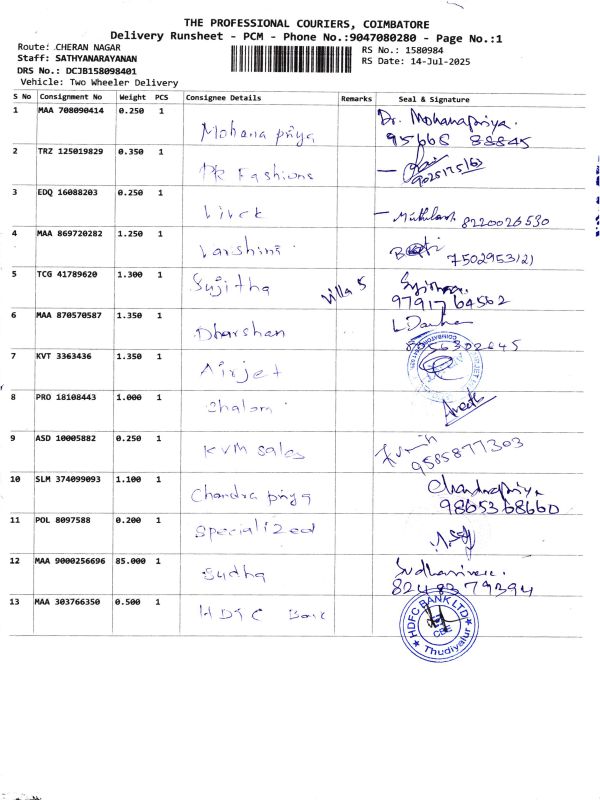 THE PROFESSIONAL COURIERS, COIMBATORE
Delivery Runsheet - PCM - Phone No.:9047080280 - Page No.:1
Route: CHERAN NAGAR
RS No.: 1580984
Staff: SATHYANARAYANAN
RS Date: 14-Jul-2025
DRS No.: DCJB158098401
Vehicle: Two Wheeler Delivery
S No Consignment No Weight PCS Consignee Details Remarks Seal & Signature
1 MAA 708090414 0.250 1 Mohana priya Dr. Mohanapriya.
95668 88845
2 TRZ 125019829 0.350 1 PR Fashions
3 EDQ 16088203 0.250 1 Vivek 8220026530
4 MAA 869720282 1.250 1 Varshini 7502953121
5 TCG 41789620 1.300 1 Sujitha Villa 5
9791764562
6 MAA 870570587 1.350 1 Dharshan
7 KVT 3363436 1.350 1 Airjet
8 PRO 18108443 1.000 1 Shalom
9 ASD 10005882 0.250 1 KVM Sales
9585877303
10 SLM 374099093 1.100 1 Chandra priya Chandrapriya
9865368660
11 POL 8097588 0.200 1 Specialized
12 MAA 9000256696 85.000 1 Sudha
8248379394
13 MAA 303766350 0.500 1 HDFC Bank HDFC BANK LTD
CBE
Thudiyalur